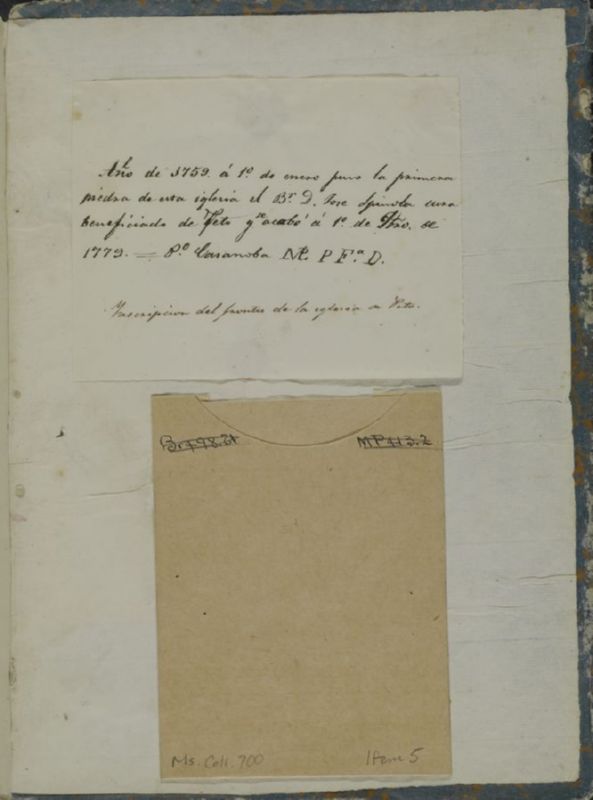 Año de 1759. á 1º de enero puso la primera
piedra de esta iglesia el Br. D. Jose Spinola cura
beneficiado de Peto y se acabó á 1º de de
1779. = P.º Casanoba Mº. P Fª. D.
Inscripcion del frontis de la iglesia de Peto.
Br498.21 MP413.2
Ms. Coll. 700 Item 5